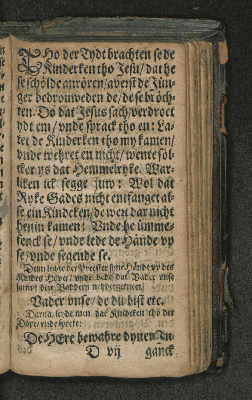 THo der Tydt brachten se de
Kinderken tho Jesu / dat he
se schölde anrören / averst de Jün-
ger bedrouweden de / de se bröch-
ten. Do dat Jesus sach / verdroet
ydt em / unde sprack tho en: La-
tet de Kinderken tho my kamen /
unde wehret en nicht / wente söl-
ker ys dat Hemmelryke. War-
liken ick segge juw: Wol dat
Ryke Gades nicht entfanget al-
se ein Kindeken / de wert dar nicht
henin kamen. Unde he ümme-
fenck se / unde lede de Hände up
se / unde segende se.
Denn legge der Preester syne Hände up des
Kindes Hövet / unde bede dat Vader unse
sampt den Vaddern neddergeknet.
Vader unse / de du bist etc.
Darna leyde men dat Kindeken tho der
Döpe / unde spreke:
De HEre bewahre dynen In-
D vij ganck